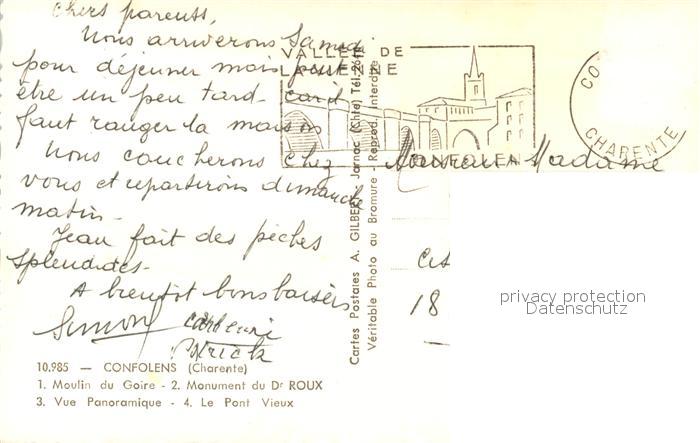 chers parents,
Nous arriverons Samedi
pour déjeuner mais peut
être un peu tard - car il
faut ranger la maison
Nous coucherons chez
vous et repartirons dimanche
matin -
Jean fait des pêches
splendides -
A bientôt bons baisers
Simon Catherine
Patrick
10.985 — CONFOLENS (Charente)
1. Moulin du Goire - 2. Monument du Dr ROUX
3. Vue Panoramique - 4. Le Pont Vieux
Cartes Postales A. GILBERT Jarnac (Chte) Tél.
Véritable Photo au Bromure - Reprod. Interdite
VALLÉE DE
LA VIENNE
CONFOLENS
CO
CHARENTE
Madame
18
privacy protection
Datenschutz